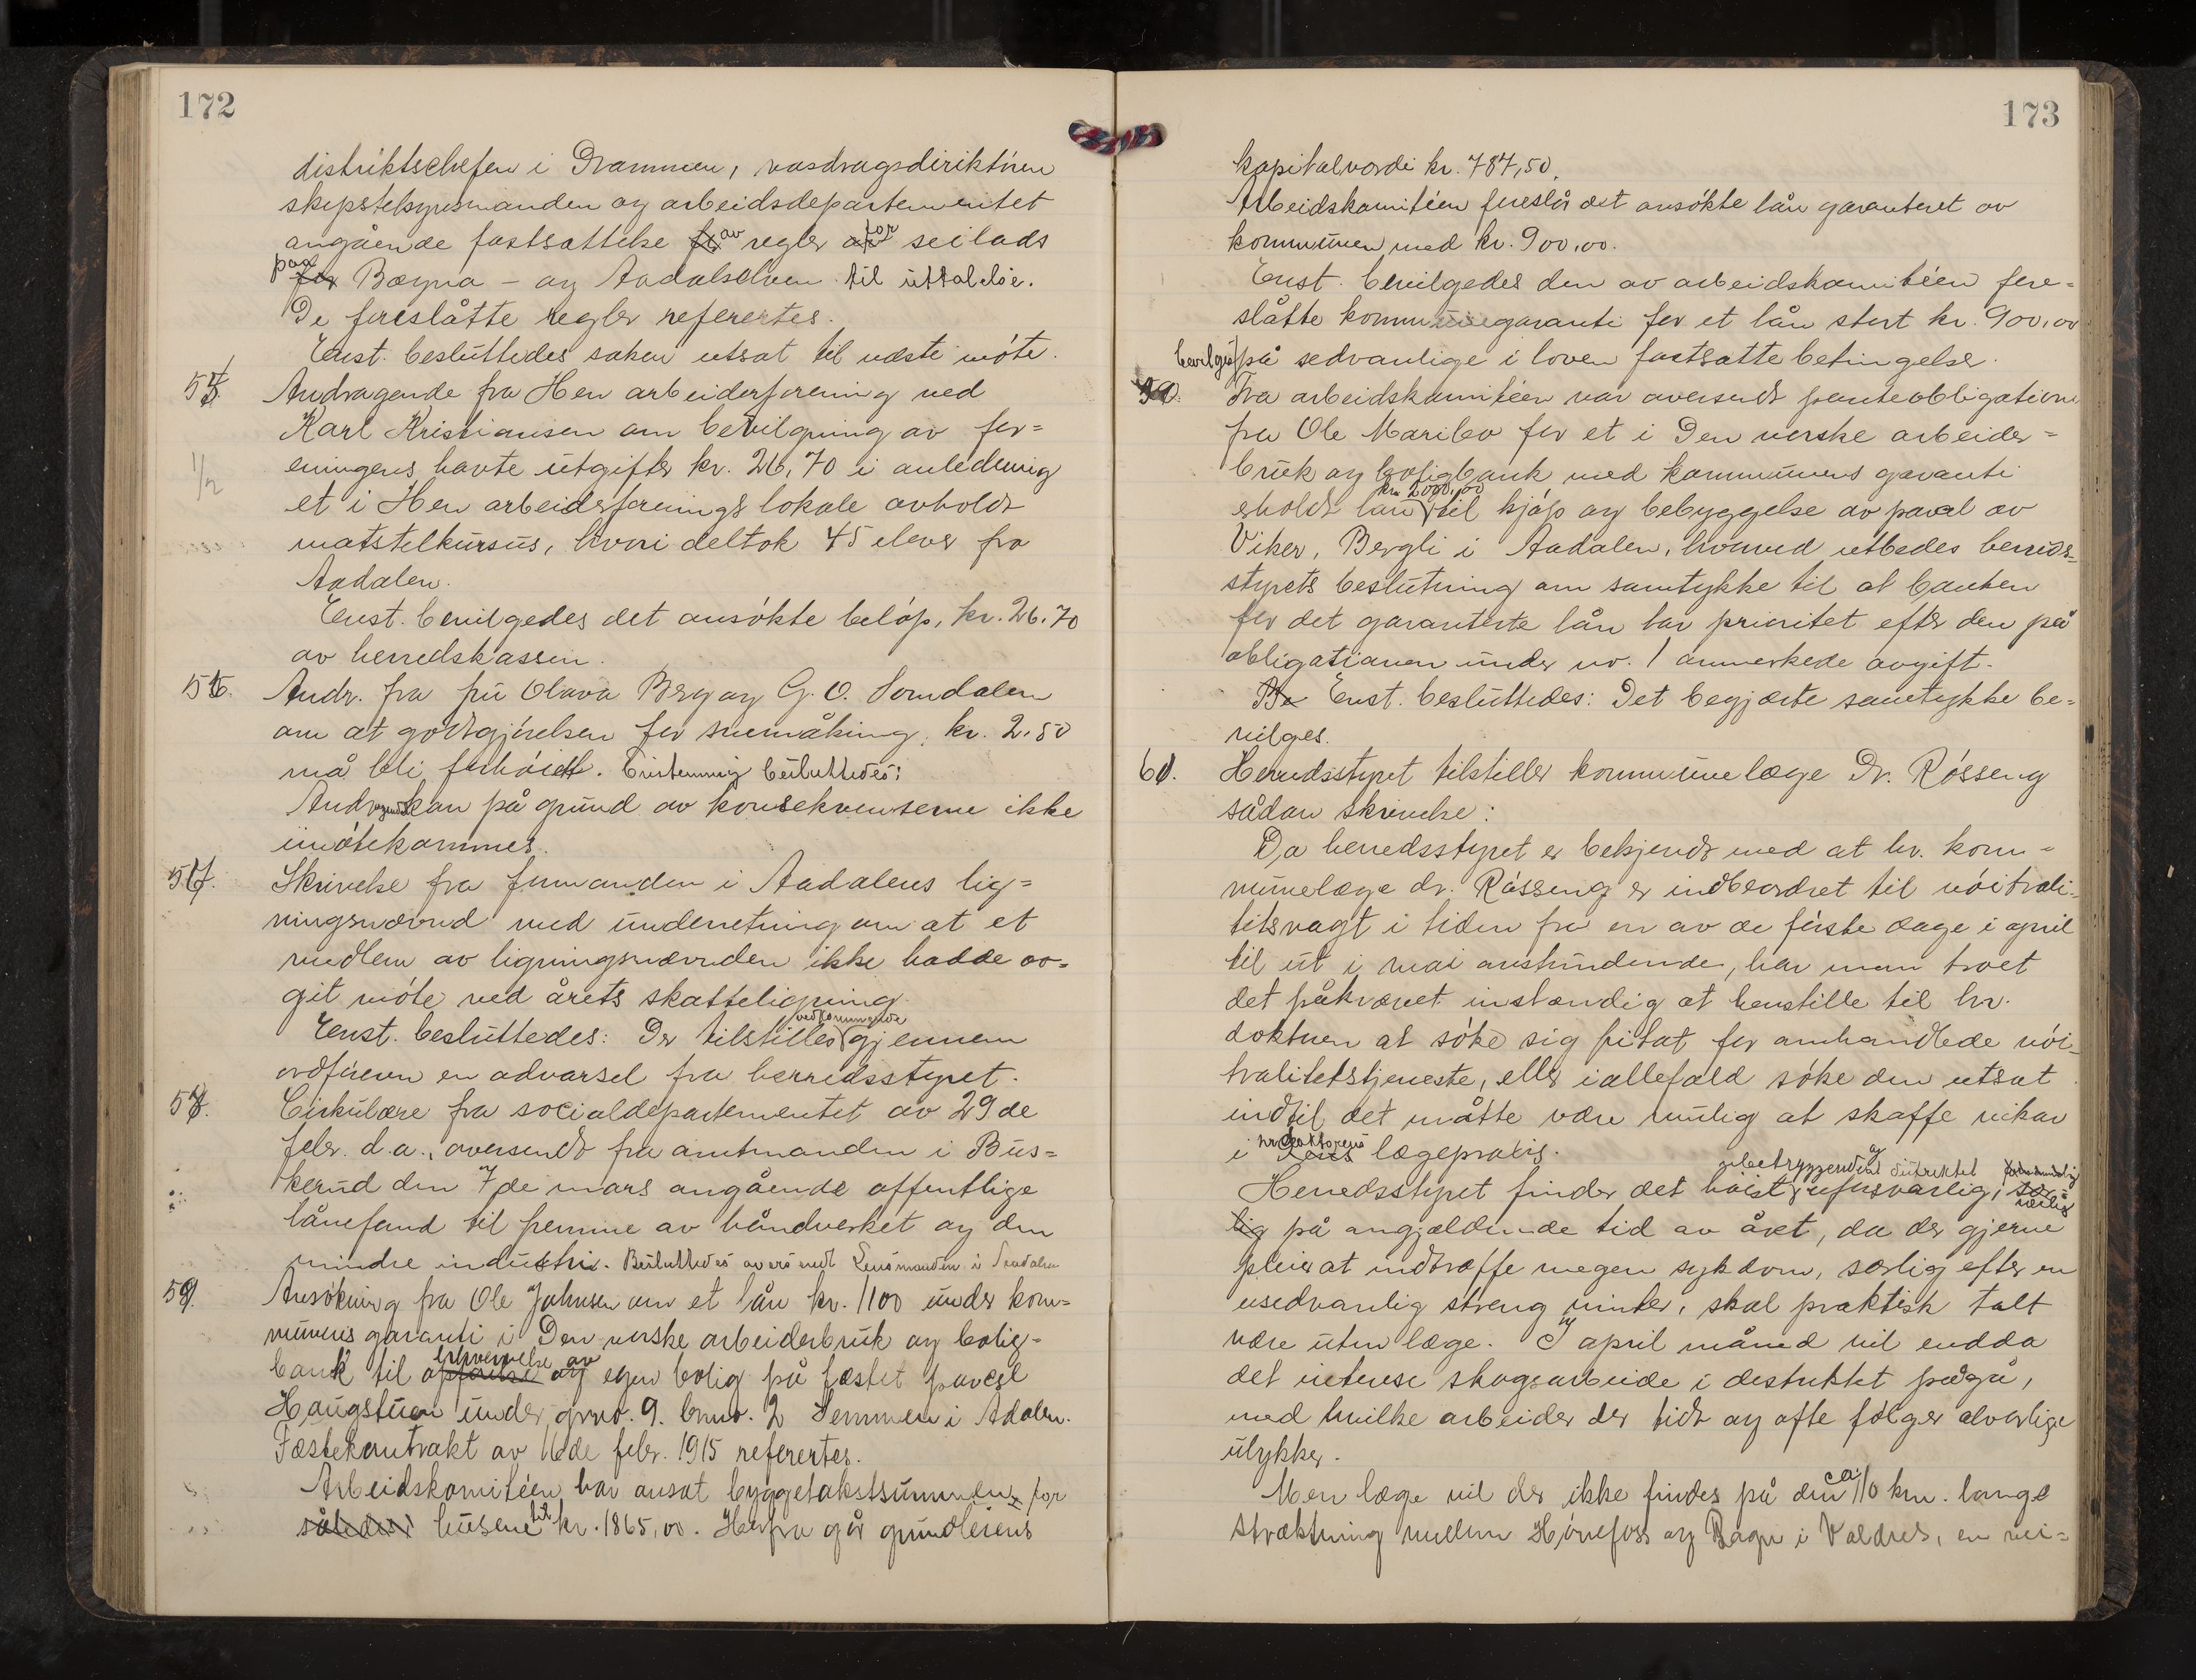 172
distriktschefen i Drammen, vasdragsdiriktören
skipstilsynsmanden og arbeidsdepartementet
angående fastsættelse av regler for seilads
paa Bægna – og Aadalselven til uttalelse.
De foreslåtte regler refererte­s.
Enst. besluttedes saken utsat til næste möte.
55. Andragende fra Hen arbeiderforening ved
Karl Kristiansen om bevilgning av for=
eningens havte utgifter kr. 26,70 i anledning
et i Hen arbeiderforenings lokale avholdt
matstelkursus, hvori deltok 45 elever fra
Aadalen.
Enst. bevilgedes det ansökte belöp, kr. 26.70
av herredskassen.
56. Andr. fra fru Olava Berg og G. O. Somdalen
om at godtgjörelsen for snemåking, kr. 2,50
må bli forhöiet. Enstemmig besluttedes:
Andragendet kan på grund av konsekvenserne ikke
imötekommes.
57. Skrivelse fra formanden i Aadalens lig=
ningsnævnd med underretning om at et
medlem av ligningsnævnden ikke hadde av=
git möte ved årets skatteligning.
Enst. besluttedes: Der tilstilles vedkommende gjennem
ordföreren en advarsel fra herredsstyret.
58. Cirkulære fra socialdepartementet av 29de
febr. d.a., oversendt fra amtmanden i Bus=
kerud den 7de mars angående offentlige
lånefond til fremme av håndverket og den
mindre industri. Besluttedes oversendt Lensmanden i Aadalen
59. Ansökning fra Ole Johnsen om et lån kr. 1100 under kom=
munens garanti i Den norske arbeiderbruk og bolig=
bank til erhvervelse av egen bolig på fæstet parcel
Haugstuen under grno. 9. brno. 2 Semmen i Ådalen.
Fæstekontrakt av 16de febr. 1915 refererte­s.
Arbeidskomitéen har ansat byggetakstsummen for
husene til kr. 1865,00. Herfra går grundleiens
173
kapitalværdi kr. 787,50.
Arbeidskomitéen foreslår det ansökte lån garanteret av
kommunen med kr. 900,00.
Enst. bevilgedes den av arbeidskomitéen fore=
slåtte kommunegaranti for et lån stort kr. 900,00
på sedvanlige i loven fastsatte betingelser.
Fra arbeidskomitéen var oversendt panteobligation
fra Ole Marilev for et i Den norske arbeider=
bruk og boligbank med kommunens garanti
erholdt lån kr. 2000,00 til kjöp og bebyggelse av parcel av
Viker, Bergli i Aadalen, hvorved utbedes herreds=
styrets beslutning om samtykke til at banken
for det garanterte lån har prioritet efter den på
obligationen under no. 1 anmerkede avgift.
Enst. besluttedes: Det begjærte samtykke be=
vilges.
Herredsstyret tilstiller kommunelæge Dr. Rösseng
sådan skrivelse:
Da herredsstyret er bekjendt med at hr. kom=
munelæge dr. Rösseng er indbeordret til nöitrali=
tetsvagt i tiden fra en av de förste dage i april
til ut i mai anstundende, har man troet
det påkrævet instændig at henstille til hr.
doktoren at söke sig fritat for omhandlede nöi=
tralitetstjeneste, eller iallefald söke den utsat
indtil det måtte være mulig at skaffe vikar
i hr doktorens lægepraxis.
Herredsstyret finder det höist ubetryggende og direkte uforsvarlig, særlig
på angjældende tid av året, da der gjerne
pleier at indtræffe megen sykdom, særlig efter en
usedvanlig streng vinter, skal praktisk talt
være uten læge. I april måned vil endda
det intense skogsarbeide i destriktet pågå,
med hvilke arbeider der tidt og ofte fölger alvorlige
ulykker.
Men læge vil der ikke findes på den ca. 110 km. lange
strækning mellem Hönefoss og Bagn i Valdres, en vei=